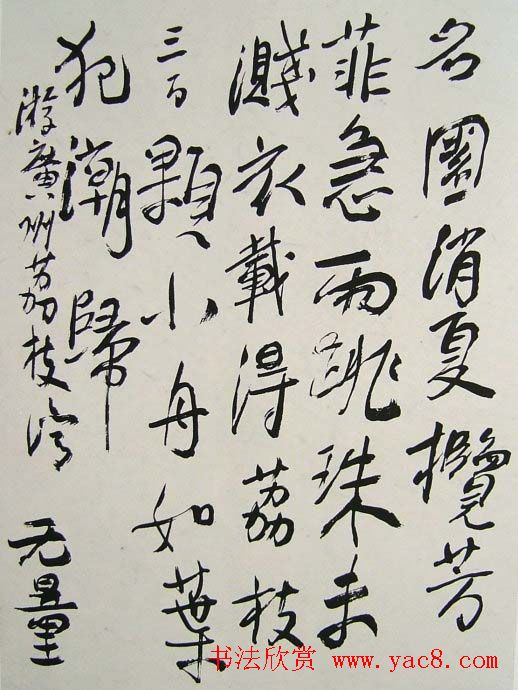 名園消夏攬芳
菲急雨跳珠未
濺衣載得荔枝
三百顆小舟如葉
犯潮歸
游廣州荔枝灣 无量
书法欣赏 www.yac8.com